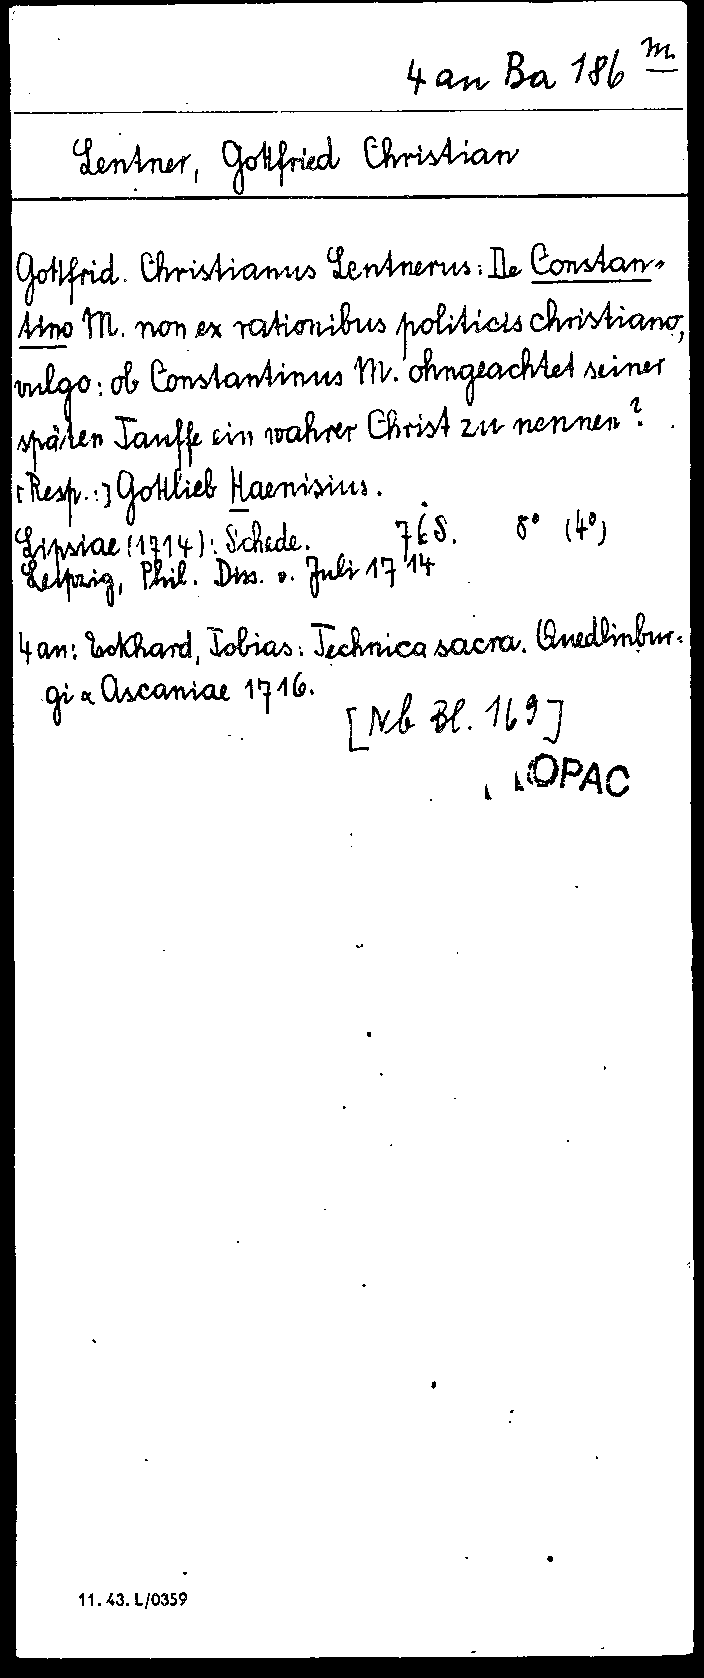 4 an Ba 186 m
Lentner, Gottfried Christian
Gottfrid. Christianus Lentnerus: De Constan-
tino M. non ex rationibus politicis christiano,
vulgo: ob Constantinus M. ohngeachtet seiner
späten Tauffe ein wahrer Christ zu nennen?
[Resp.:] Gottlieb Haenisius.
Lipsiae (1714): Schede. S. 8° (4°)
Leipzig, Phil. Diss. v. Juli 1714
4 an: Eckhard, Tobias: Technica sacra. Quedlinbur-
gi & Ascaniae 1716.
[Nb Bl. 169]
OPAC
11. 43. L/0359